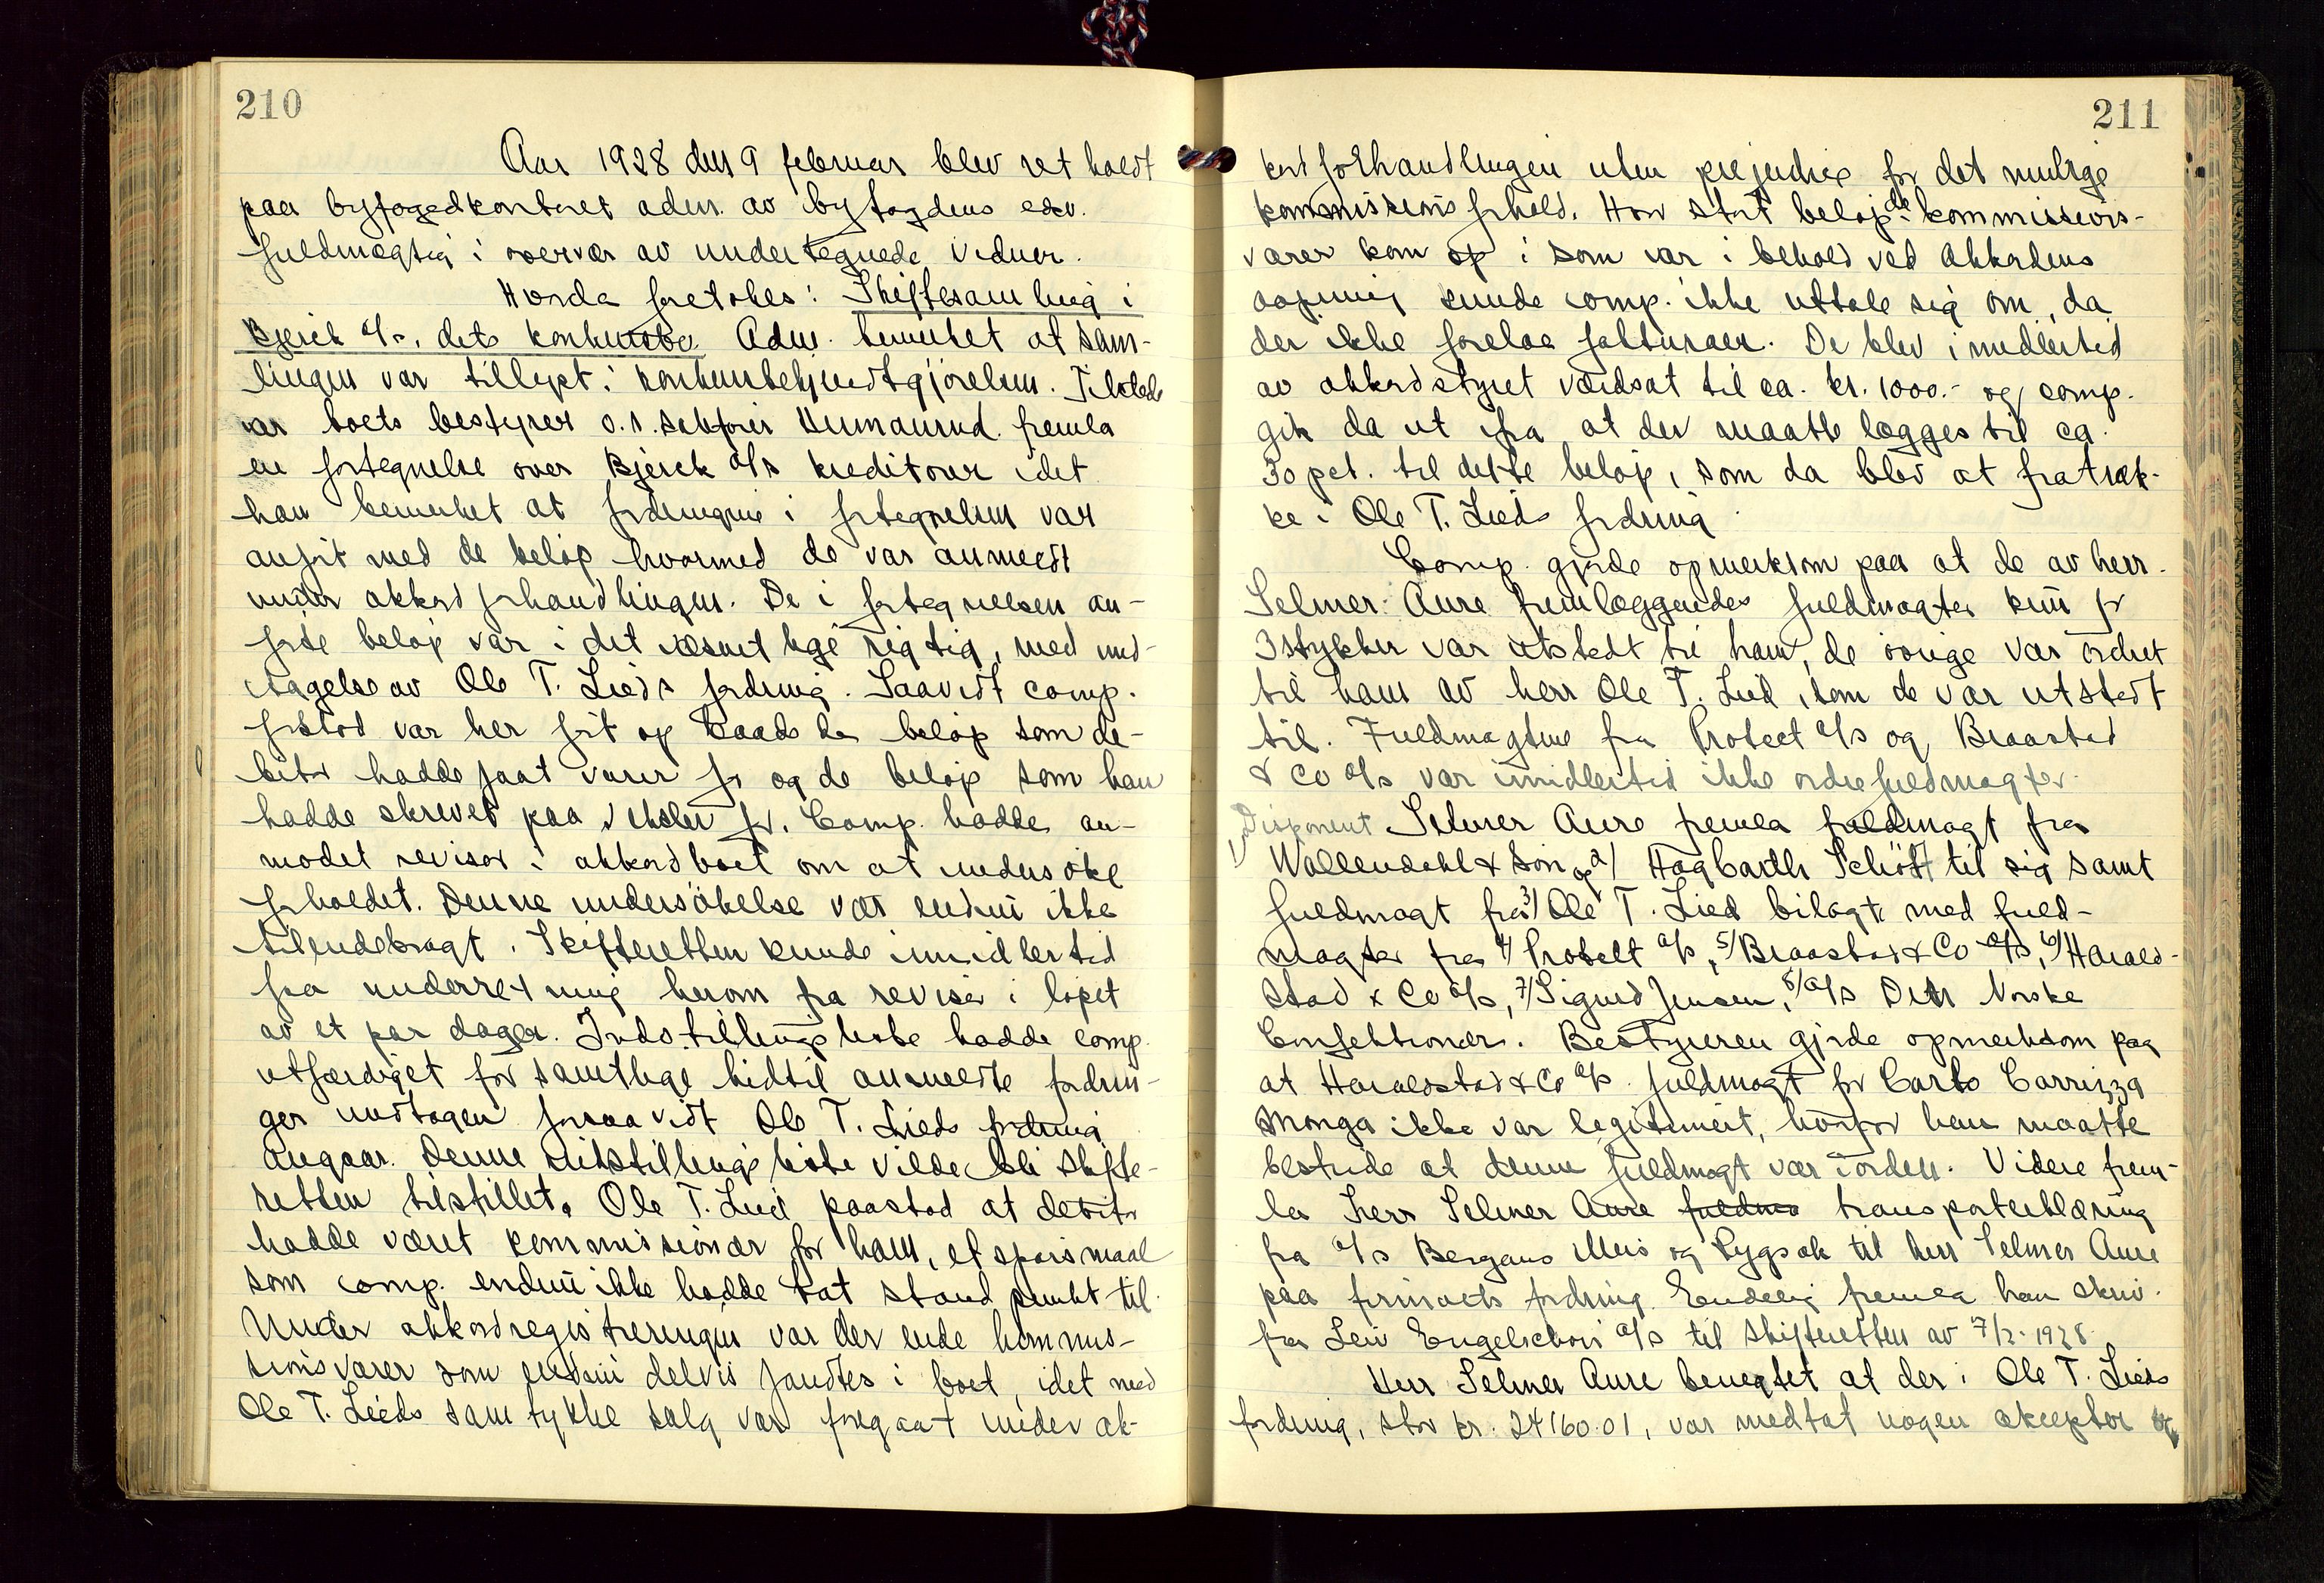 210
Aar 1928 den 9 februar blev ret holdt
paa byfogedkontoret adm. av byfogdens edsv.
fuldmægtig i overvær av undertegnede vidner.
Hvorda foretokes: Skiftesamling i
Bjerck a/s, dets konkursbo. Adm. bemerket at sam-
lingen var tillyst i konkursbekjendtgjørelsen. Tilstede
var boets bestyrer o.r.sakfører Humanrud. fremla
en fortegnelse over Bjerck a/s kreditorer idet
han bemerket at fordringene i fortegnelsen var
anført med de beløp hvormed de var anmeldt
under akkordforhandlingen. De i fortegnelsen an-
førte beløp var i det væsentlige rigtig, med und-
tagelse av Ole T. Lieds fordring. Saavidt comp.
forstod var her ført op baade de beløp som de-
bitor hadde faat varer for og de beløp som han
hadde skrevet paa veksler for. Comp. hadde an-
modet revisor i akkordboet om at undersøke
forholdet. Denne undersøkelse var endnu ikke
tilendebragt. Skifteretten kunde imidlertid
faa underretning herom fra revisor i løpet
av et par dager. Indstillingsliste hadde comp.
utfærdiget for samtlige hidtil anmeldte fordrin-
ger undtagen forsaavidt Ole T. Lieds fordring
angaar. Denne indstillingsliste vilde bli skifte-
retten tilstillet. Ole T. Lied paastod at debitor
hadde været kommissionær for ham, et spørsmaal
som comp. endnu ikke hadde tat standpunkt til.
Under akkordregistreringen var der ende kommis-
sionsvarer som endnu delvis fandtes i boet, idet med
Ole T. Lieds samtykke salg var foregaat under ak-
211
kordforhandlingen uten prejudice for det mulige
kommissionsforhold. Hvor stort beløp de kommissions-
varer kom op i som var i behold ved akkordens
aapning kunde comp. ikke uttale sig om, da
der ikke forelaa fakturaer. De blev imidlertid
av akkordstyret værdsat til ca. kr. 1000.- og comp.
gik da ut ifra at der maatte lægges til ca.
30 pct. til dette beløp, som da blev at fratræk-
ke i Ole T. Lieds fordring.
Comp. gjorde opmerksom paa at de av herr
Selmer Aure fremlæggendes fuldmagter kun for
3 stykker var utstedt til ham, de øvrige var ordret
til ham av herr Ole T. Lied, som de var utstedt
til. Fuldmagtene fra Protect a/s og Braastad
& Co a/s var imidlertid ikke ordrefuldmagter.
Disponent Selmer Aure fremla fuldmagt fra
1) Wallendahl & Søn og 2) Hagbarth Schiøtt til sig samt
fuldmagt fra 3) Ole T. Lied bilagt med fuld-
magter fra 4) Protect a/s, 5) Braastad & Co a/s, 6) Harald-
stad & Co a/s, 7) Sigurd Jensen, 8) a/s Den Norske
Confektioner. Bestyreren gjorde opmerksom paa
at Haraldsstad & Co a/s fuldmagt for Carlo
Monga ikke var legitimert, hvorfor han maatte
bestride at denne fuldmagt var i orden. Videre frem-
la herr Selmer Aure fuldma transporterklæring
fra a/s Bergans Meis og Rygsæk til herr Selmer Aure
paa firmaets fordring. Endelig fremla han skriv.
fra Leiv Engelschøn a/s til skifteretten av 7/2-1928.
Herr Selmer Aure benegtet at der i Ole T. Lieds
fordring, stor kr. 24160.01, var medtat nogen aksepter og